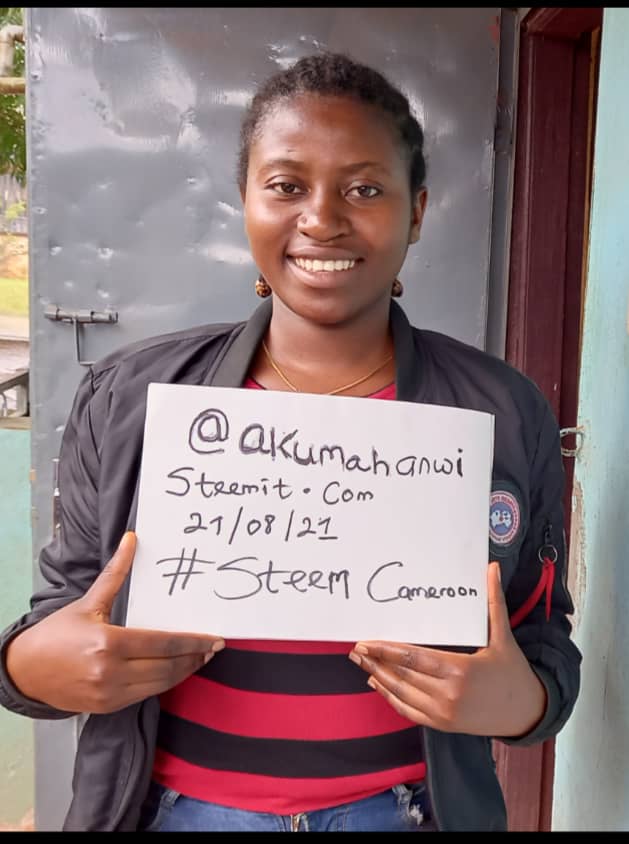 @akumahanwi
Steemit.Com
21/08/21
#Steem Cameroon